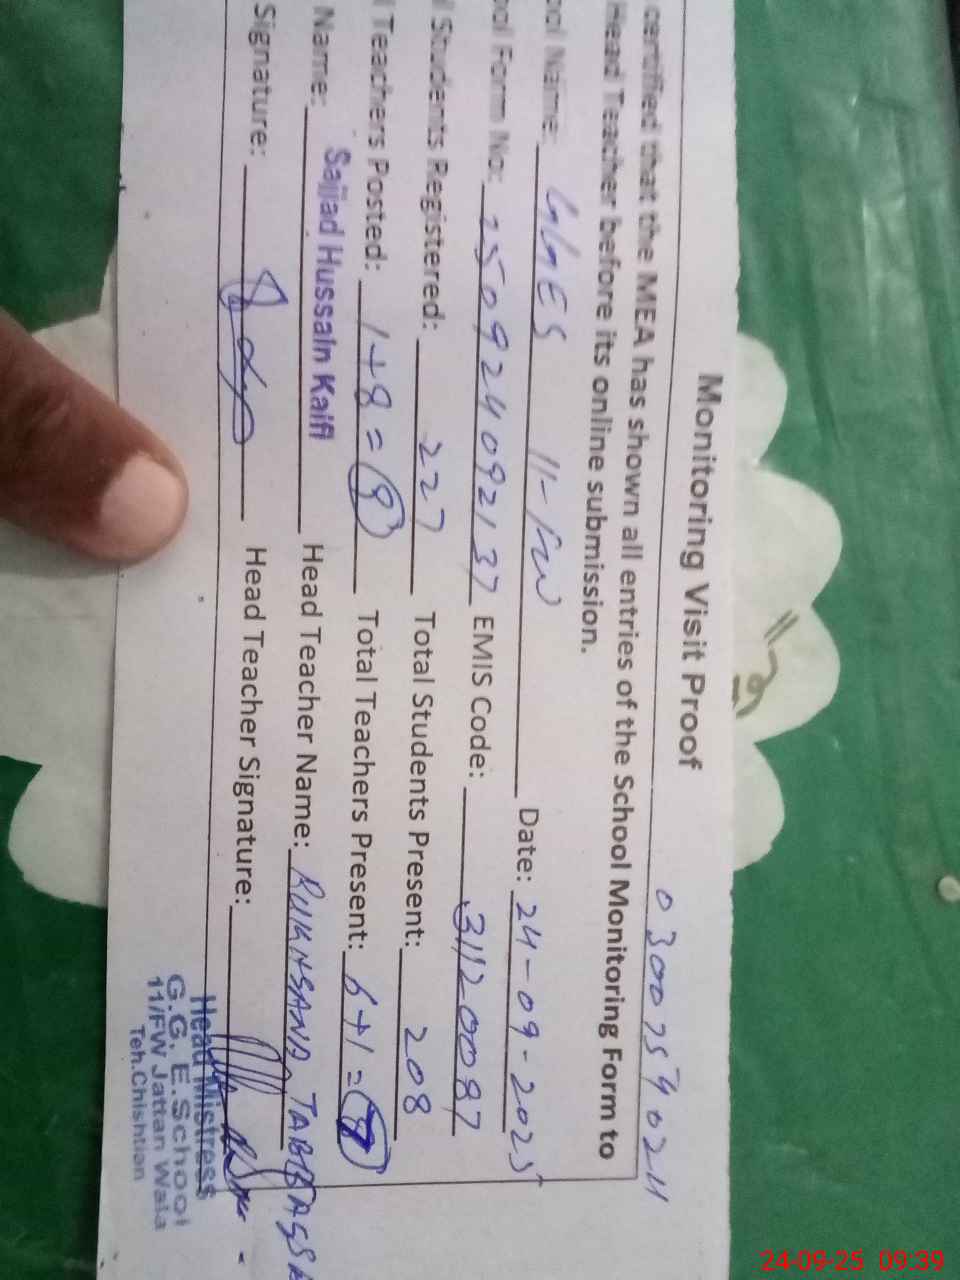 03007540211
Monitoring Visit Proof
certified that the MEA has shown all entries of the School Monitoring Form to
Head Teacher before its online submission.
ool Name: GGES 11-FW Date: 24-09-2025
ool Form No: 250924092137 EMIS Code: 31120087
l Students Registered: 227 Total Students Present: 208
l Teachers Posted: 1+8=9 Total Teachers Present: 6+1=
Name: Sajjad Hussain Kaifi Head Teacher Name: RUKHSANA TABBASS
Signature: Head Teacher Signature:
Head Mistress
G.G.E.School
11/FW Jattan Wala
Teh.Chishtian
24-09-25 09:39